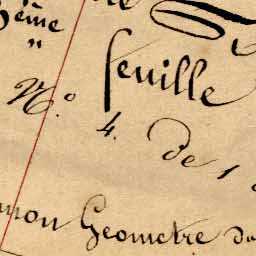 ème
"
feuille
N.º 4. de 1
mon Geometre du